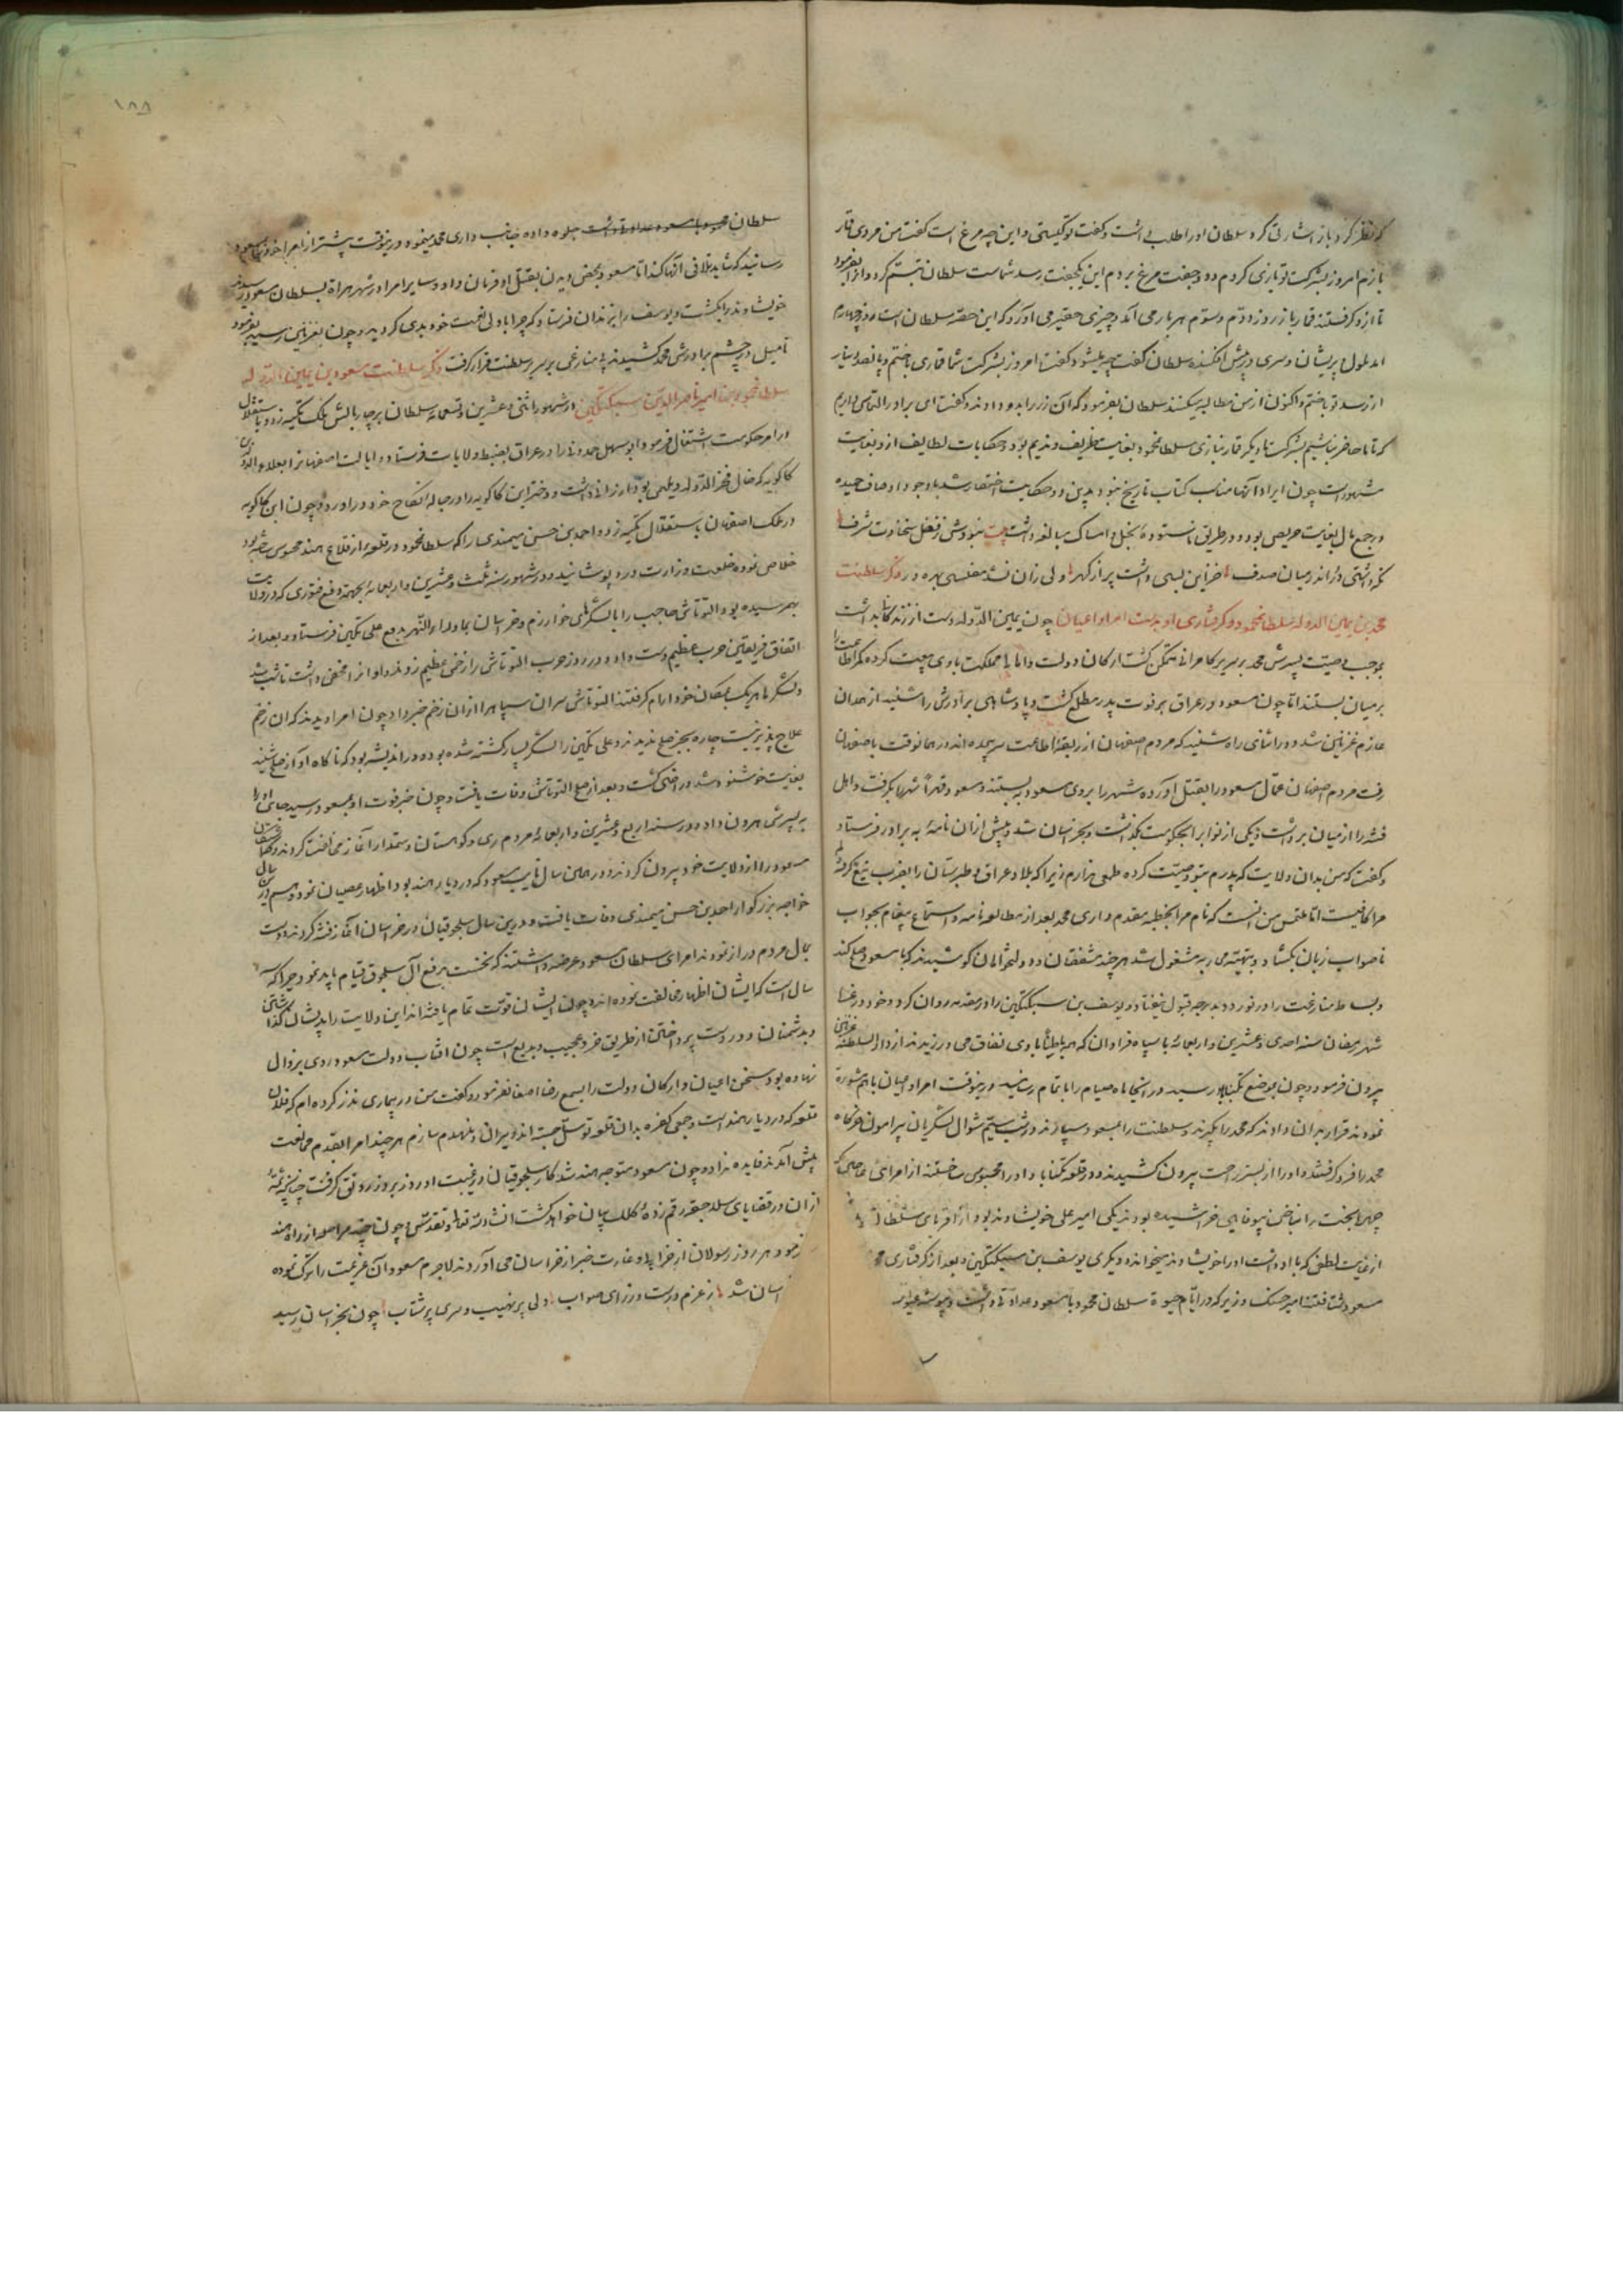 که نظر کرد باز اشارتی کرد سلطان او را طلب داشت و گفت تو کیستی و این چه مرغ است گفت من مردی قمار
بازم امروز بشرکت تو بازی کردم دو جفت مرغ بردم این یکجفت رسد شماست سلطان تبسم کرد و بفرمود
تا ازو گرفتند قمارباز روز دوم و سوم هر بار می آمد و چیزی حقیر می آورد که این حصه سلطان است روز چهارم
آمد ملول و پریشان و سری در پیش افکنده سلطان گفت چه میشود گفت امروز بشرکت شما قماری باختم و پانصد دینار
از رسد تو باختم و اکنون از من مطالبه میکنند سلطان بفرمود که آن زر را بدو دادند و گفت ای برادر التماس داریم
که تا ما حاضر نباشیم بشرکت ما دیگر قمار نبازی سلطان محمود بغایت ظریف و ندیم بود و حکایات لطایف ازو بغایت
مشهور است چون ایراد آنها مناسب کتاب تاریخ نبود بدین دو حکایت اختصار شد با وجود اوصاف حمیده
در جمع مال بغایت حریص بود و در طریق ناستوده بخل و امساک مبالغه داشت بیت نبودش ز فضل سخاوت شرف
نگه داشتی در اندر میان صدف خزاین بسی داشت پر از گهر ولی زان نشد مفلسی بهره ور ذکر سلطنت
محمد بن یمین الدوله سلطان محمود و گرفتاری او بدست امرا و اعیان چون یمین الدوله دست از زندگانی بداشت
بموجب وصیت پسرش محمد بر سریر کامرانی متمکن گشت ارکان دولت و اهالی مملکت با وی بیعت کرده کمر اطاعت را
بر میان بستند اما چون مسعود در عراق بر فوت پدر مطلع گشت و پادشاهی برادرش را شنید از همدان
عازم غزنین شد و در اثنای راه شنید که مردم اصفهان از ربقه اطاعت سر پیچیده اند در همانوقت باصفهان
رفت مردم اصفهان عمال مسعود را بقتل آورده شهر را بروی مسعود بستند و مسعود قهرا شهر را بگرفت و اهل
فتنه را از میان برداشت و یکی از نواب را بحکومت بگذاشت و بخراسان شد و پیش از آن نامه به برادر فرستاد
و گفت که من بدان ولایت که پدرم بتو وصیت کرده طمعی ندارم زیرا که بلاد عراق و طبرستان را بضرب تیغ گرفته ام
مرا کافیست اما ملتمس من آنست که نام مرا بخطبه مقدم داری محمد بعد از مطالعه نامه و استماع پیغام بجواب
ناصواب زبان بگشاد و بتهیه حرب مشغول شد هرچند مشفقان و دولتخواهان کوشیدند که با مسعود صلح کند
و بساط منازعت را در نوردد بدرجه قبول نیفتاد و یوسف بن سبکتگین را در مقدمه روان کرد و خود در غره
شهر رمضان سنه احدی و عشرین و اربعمائه با سپاه فراوان که همه باطنا با وی نفاق می ورزیدند از دار السلطنه غزنین
بیرون فرمود و چون بموضع تکیناباد رسید در آنجا ماه صیام را باتمام رسانید درینوقت امرا و اعیان با هم مشوره
نمودند قرار بدان دادند که محمد را بگیرند و سلطنت را بمسعود سپارند و در شب سیم شوال لشکریان پیرامون خرگاه
محمد را فرو گرفتند و او را از بستر راحت بیرون کشیدند و در قلعه تکناباد او را محبوس ساختند از امرای عاصی که
چهره بخت را بناخن بیوفایی خراشیده بودند یکی امیر علی خویشاوند بود و از اقربای سلطان
از غایت لطفی که با او داشت او را خویشاوند میخوانده و دیگری یوسف بن سبکتگین و بعد از گرفتاری محمد
مسعود شتافتند امیر حسنک وزیر که در ایام حیوة سلطان محمود با مسعود عداوتی داشت و پیوسته
سلطان محمود با مسعود عداوت داشت جلوه داده جانب داری محمد مینمود درینوقت پیشتر از امرا خود را بمسعود
رسانید که شاید تلافی آنها کند اما مسعود بمحض دیدن بقتل او فرمان داد و سایر امرا در شهر هراة بسلطان مسعود رسیدند
خویشاوند را بکشت و یوسف را بزندان فرستاد که چرا با ولی نعمت خود بدی کردید و چون بغزنین رسید بفرمود
تا میل در چشم برادرش محمد کشیدند و بی منازعی بر سریر سلطنت قرار گرفت ذکر سلطنت مسعود بن یمین الدوله
سلطان محمود بن امیر ناصر الدین سبکتگین در شهور اثنی و عشرین و اربعمائه سلطان بر چار بالش ملک تکیه زد و باستقلال
در امر حکومت اشتغال فرمود و ابو سهل حمدونی را در عراق بضبط ولایات فرستاد و ایالت اصفهان را بعلاء الدوله بن
کاکویه که خال فخر الدوله دیلمی بود ارزانی داشت و دختر ابن کاکویه را در حباله نکاح خود در آورد و چون ابن کاکویه
در ملک اصفهان باستقلال تکیه زد و احمد بن حسن میمندی را که سلطان محمود در قلعه از قلاع هند محبوس کرده بود
خلاص نموده خلعت وزارت درو پوشانید و در شهور سنه ثلث و عشرین و اربعمائه بجهت دفع فتوری که در ولایت
بهم رسیده بود التونتاش حاجب را با لشکرهای خوارزم و خراسان بماوراء النهر بدفع علی تکین فرستاد و بعد از
اتفاق فریقین حرب عظیم دست داد و در روز حرب التونتاش را زخمی عظیم زدند و او آنرا مخفی داشت تا شب شد
و لشکرها هر یک بمکان خود آرام گرفتند التونتاش سران سپاه را از آن زخم خبر داد چون امرا دیدند که آن زخم
علاج پذیر نیست چاره بجز صلح ندیدند و علی تکین را لشکر بسیار کشته شده بود و در اندیشه بود که ناگاه آواز صلح شنید
بغایت خوشنود شد و راضی گشت و بعد از صلح التونتاش وفات یافت و چون خبر فوت او بمسعود رسید جای او را
به پسرش هرون داد و در سنه اربع و عشرین و اربعمائه مردم ری و کوهستان و رستمدار آغاز مخالفت کردند
مسعود را از ولایت خود بیرون کردند و در همین سال نایب مسعود که در دیار هند بود اظهار عصیان نمود و هم درین سال
خواجه بزرگوار احمد بن حسن میمندی وفات یافت و درین سال سلجوقیان در خراسان آغاز فتنه کردند و دست
بمال مردم دراز نمودند امرای سلطان مسعود عرضه داشتند که نخست بدفع آل سلجوق قیام باید نمود چرا که
سال است که ایشان اظهار مخالفت نموده اند و چون ایشان قوت تمام یافته اند این ولایت را بدیشان گذاشتن
و بدشمنان دور دست پرداختن از طریق خرد عجیب و بدیع است چون آفتاب دولت مسعود روی بزوال
نهاده بود سخن اعیان و ارکان دولت را بسمع رضا اصغا نفرمود و گفت من در بیماری نذر کرده ام که فلان
قلعه که در دیار هند است و جمعی کفره بدان قلعه توسل جسته اند ویران و منهدم سازم هرچند امرا بقدم ممانعت
پیش آمدند فایده نداد و چون مسعود متوجه هند شد کار سلجوقیان در غیبت او روز بروز رونق گرفت چنانچه شمه
از آن در قضایای سلاجقه رقم زده کلک بیان خواهد گشت انشاء الله تعالی و تقدس و چون چند مرحله از راه هند
نمود هر روز رسولان از خرابی و غارت خبر از خراسان می آوردند لاجرم مسعود آن عزیمت را ترک نموده
اسان شد ز عزم درست و رزای صواب ولی پر نهیب و سری پر شتاب چون بخراسان رسید